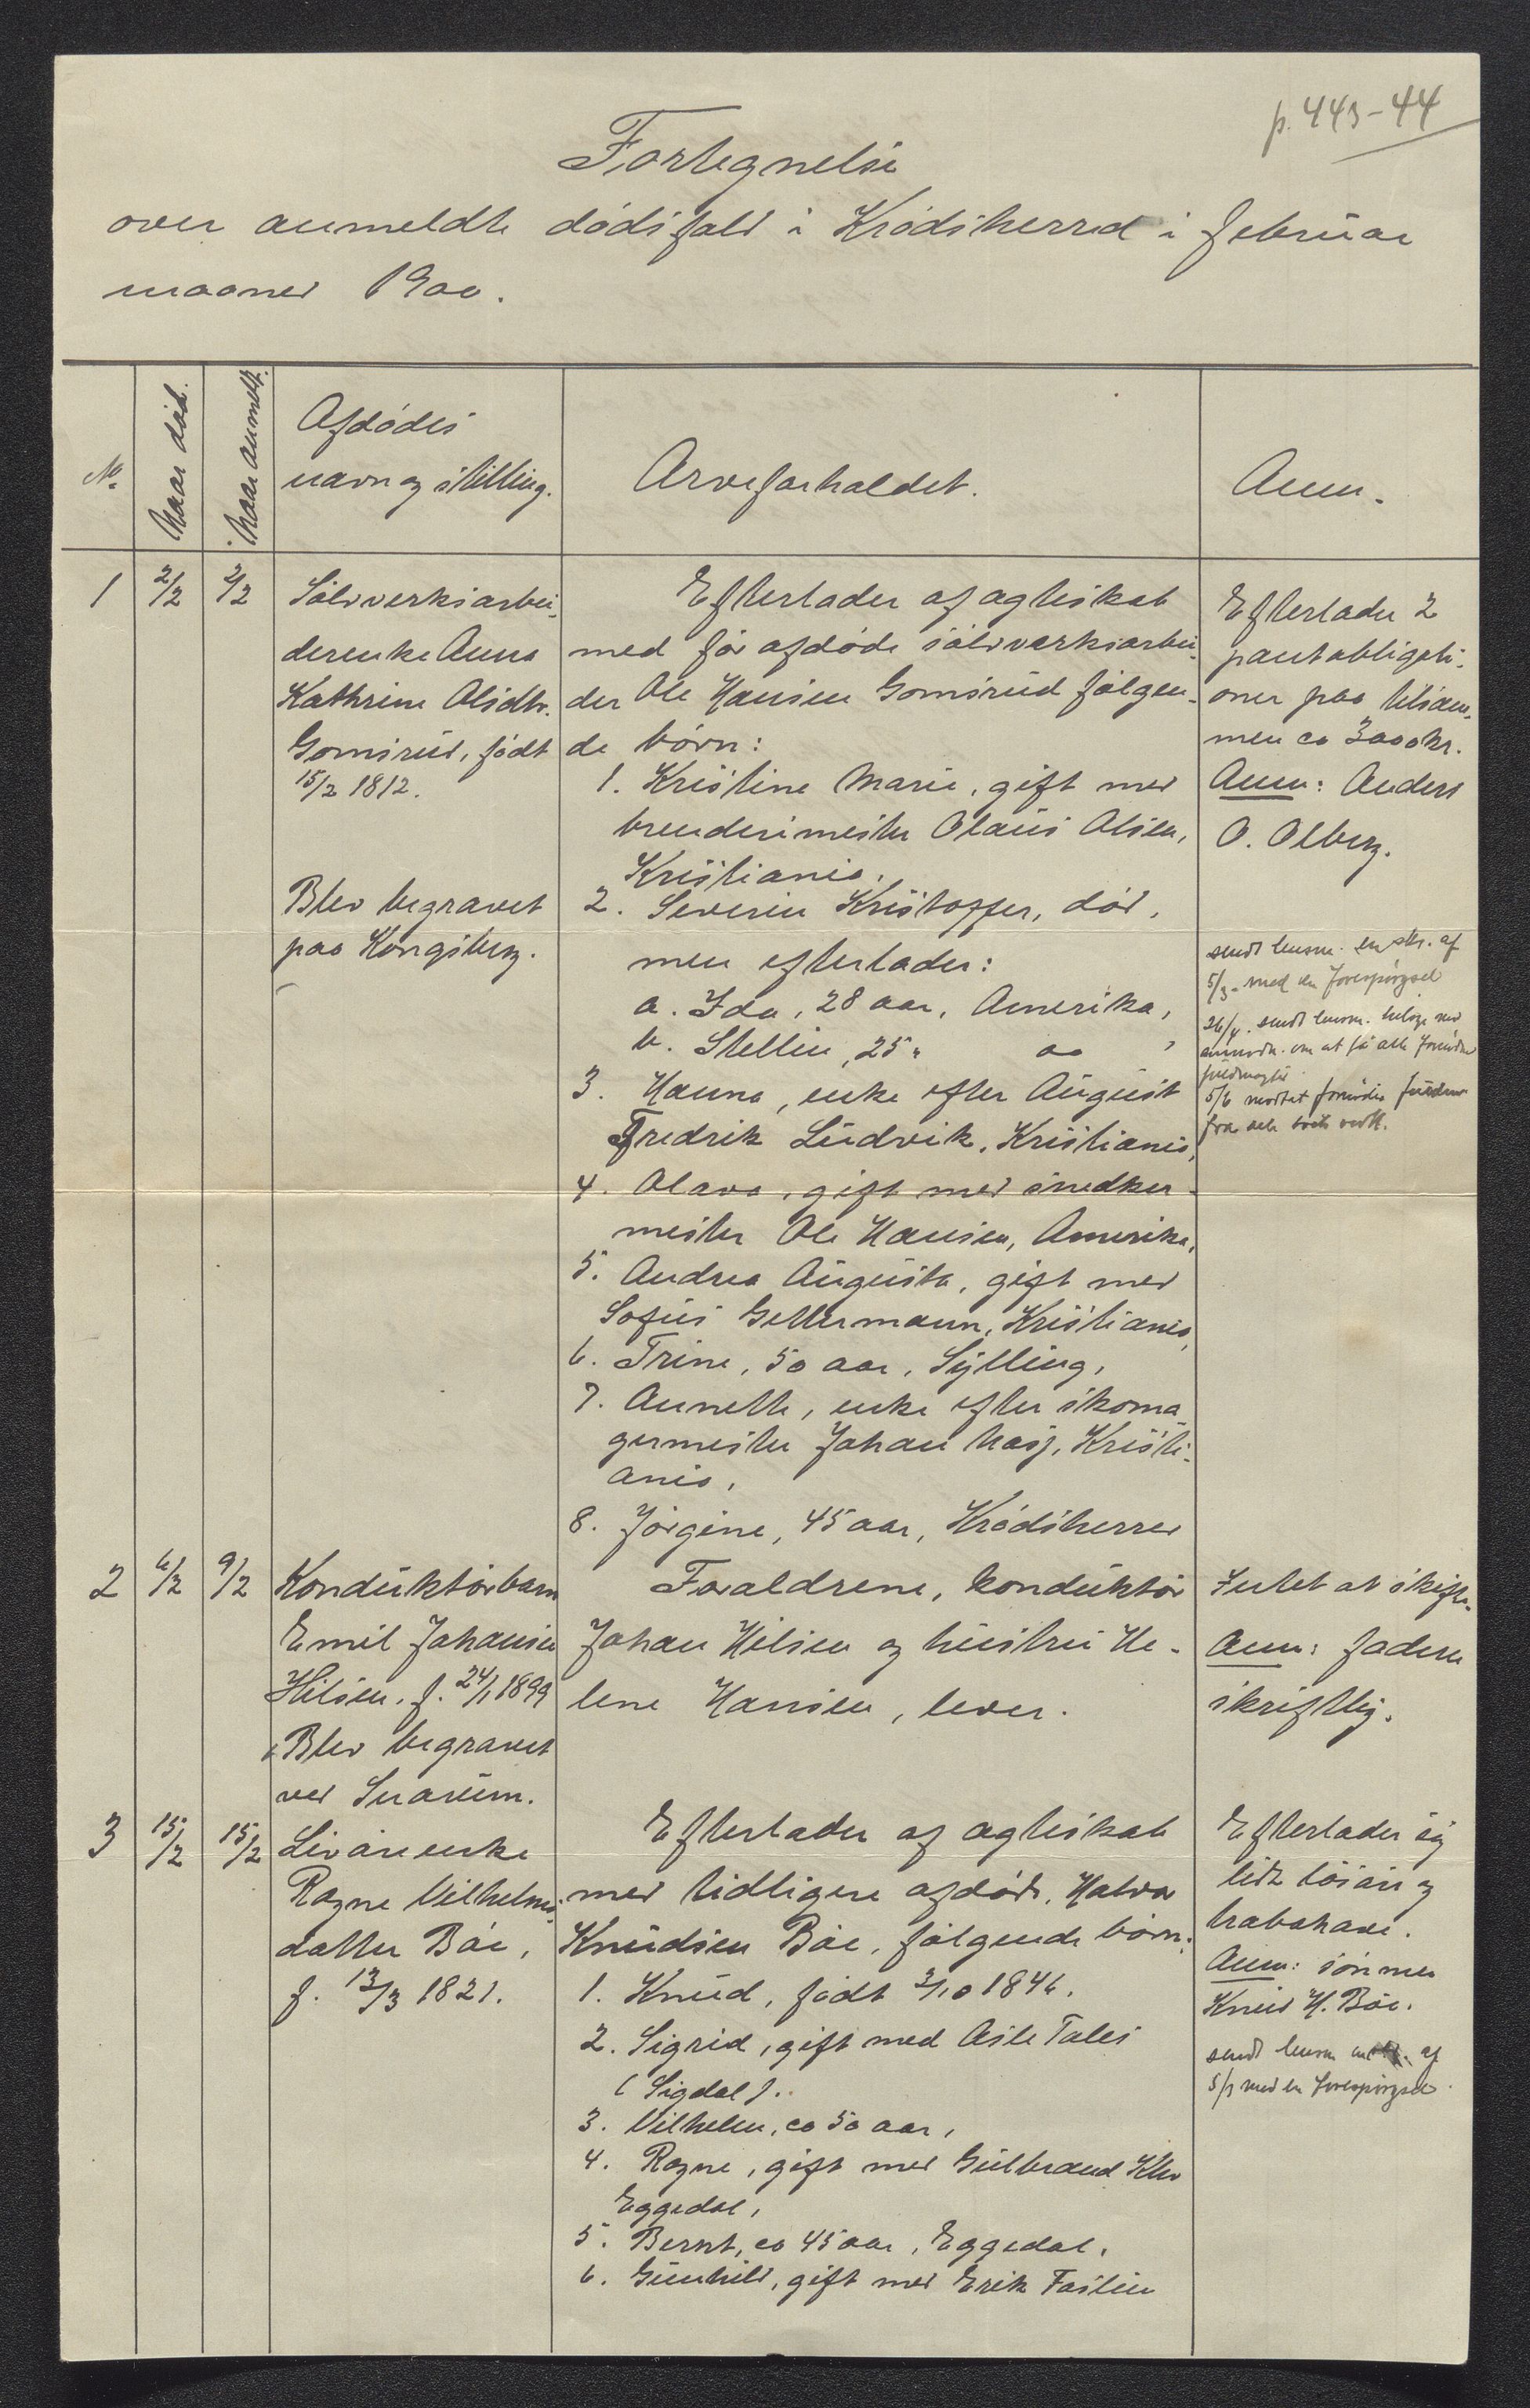 p. 443-44
Fortegnelse
over anmeldte dødsfald i Krødsherred i februar
maaned 1900.
No.
Naar død.
Naar anmeldt.
Afdødes
navn og stilling.
Arveforholdet.
Anm.
1
2/2
2/2
Sølvverksarbei-
derenke Anna
Kathrine Olsdtr.
Gomsrud, født
15/2 1812.
Blev begravet
paa Kongsberg.
Efterlader af ægteskab
med før afdøde sølvverksarbei-
der Ole Hansen Gomsrud følgen-
de børn:
1. Kristine Marie, gift med
brenderimester Olaus Olsen,
Kristiania.
2. Severin Kristoffer, død,
men efterlader:
a. Ida, 28 aar, Amerika,
b. Stellin, 25 " do ,
3. Hanna, enke efter August
Fredrik Ludvik, Kristiania,
4. Olava, gift med snedker-
mester Ole Hansen, Amerika,
5. Andrea Augusta, gift med
Sofus Gettermann, Kristiania,
6. Trine, 50 aar, Sylling,
7. Annette, enke efter skoma-
germester Johan Næss, Kristi-
ania,
8. Jørgine, 45 aar, Krødsherred
Efterlader 2
pantobligati-
oner paa tilsam-
men ca 3000 kr.
Anm: Anders
O. Olberg.
sendt lensm. en skr. af
5/3 med en forespørgsel
26/4 sendt lensm. med
anmodn. om at få alle
5/6 modtat fornødne
fra alle
2
6/2
9/2
Konduktørbarn
Emil Johansen
Hilsen, f. 24/1 1899
Blev begravet
ved Snarum.
Forældrene, konduktør
Johan Hilsen og hustru He-
lene Hansen, lever.
Intet at skifte.
Anm: faderen
skriftlig.
3
15/2
15/2
Livøreenke
Ragne Vilhelms-
datter Bøe,
f. 13/3 1821.
Efterlader af ægteskab
med tidligere afdøde Halvor
Knudsen Bøe, følgende børn:
1. Knud, født 3/10 1846.
2. Sigrid, gift med Asle Tales
(Sigdal).
3. Vilhelm, ca 50 aar,
4. Ragne, gift med Gulbrand Klev
Eggedal,
5. Bernt, ca 45 aar, Eggedal.
6. Gunhild, gift med Erik Faslien
Efterlader sig
lidt løsøre og
Anm: sønnen
Knud H. Bøe.
sendt lensm af
5/3 med en forespørgsel.